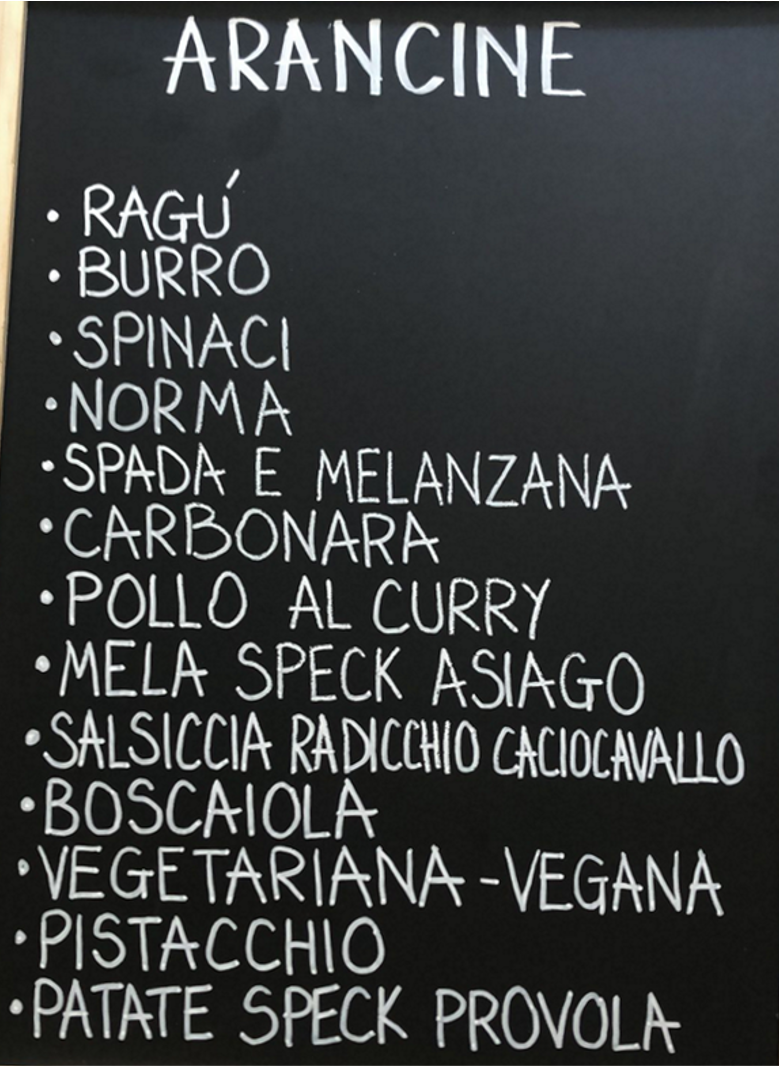 ARANCINE
• RAGÚ
• BURRO
• SPINACI
• NORMA
• SPADA E MELANZANA
• CARBONARA
• POLLO AL CURRY
• MELA SPECK ASIAGO
• SALSICCIA RADICCHIO CACIOCAVALLO
• BOSCAIOLA
• VEGETARIANA - VEGANA
• PISTACCHIO
• PATATE SPECK PROVOLA